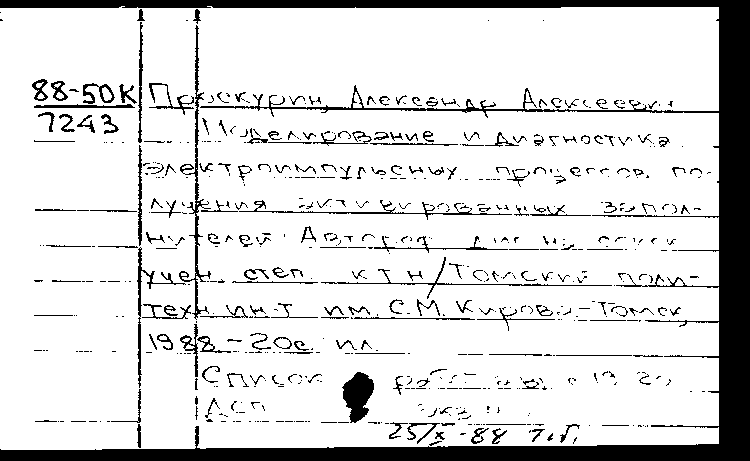 88-50К Проскурин, Александр Алексеевич
7243 Моделирование и диагностика
электроимпульсных процессов по-
лучения активированных запол-
нителей: Автореф дис на соиск
учен. степ. к т н/Томский поли-
техн ин-т им. С.М. Кирова-Томск,
1988-20с ил.
Список работ авт. с 19 20
ДСП экз
25/X-88